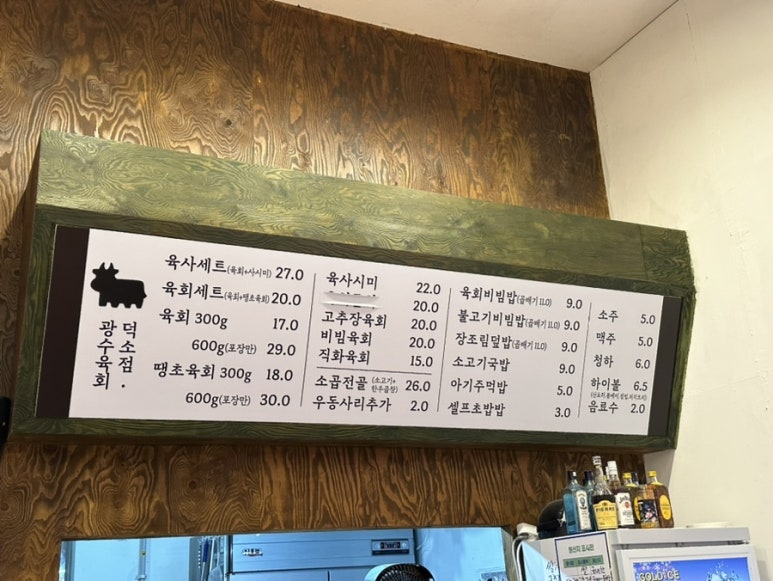 광수육회
덕소점.
육사세트(육회+사시미) 27.0
육회세트(육회+땡초육회) 20.0
육회 300g 17.0
600g(포장만) 29.0
땡초육회 300g 18.0
600g(포장만) 30.0
육사시미 22.0
20.0
고추장육회 20.0
비빔육회 20.0
직화육회 15.0
소곱전골 (소고기+한우곱창) 26.0
우동사리추가 2.0
육회비빔밥(곱배기 11.0) 9.0
불고기비빔밥(곱배기 11.0) 9.0
장조림덮밥(곱배기 11.0) 9.0
소고기국밥 9.0
아기주먹밥 5.0
셀프초밥밥 3.0
소주 5.0
맥주 5.0
청하 6.0
하이볼 6.5
음료수 2.0
원산지 표시판
GOLD ICE